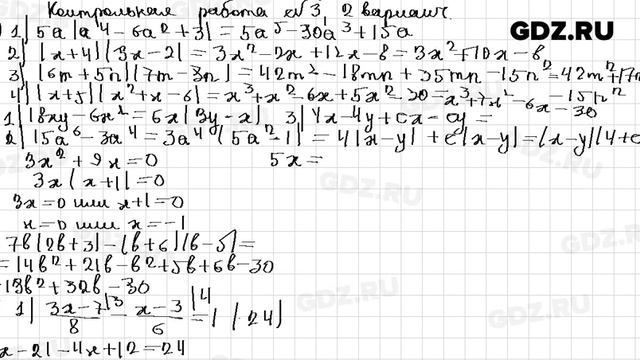 Контрольная работа №3, 2 вариант.
GDZ.RU
1) 5a(a⁴-6a²+3)=5a⁵-30a³+15a
2) (x+4)(3x-2)=3x²-2x+12x-8=3x²+10x-8
3) (6m+5n)(7m-3n)=42m²-18mn+35mn-15n²=42m²+17m
-15n²
4) (x+5)(x²+x-6)=x³+x²-6x+5x²-30=x³+7x²-6x-30
1) 18xy-6x²=6x(3y-x) 3) 4x-4y+cx-cy=
2) 15a⁶-3a⁴=3a⁴(5a²-1) =4(x-y)+c(x-y)=(x-y)(4+c
3x²+9x=0 5x=
3x(x+1)=0
3x=0 или x+1=0
x=0 или x=-1
7b(2b+3)-(b+6)(b-5)=
=14b²+21b-b²+5b+6b-30
=13b²+32b-30
1) 3x-7/8 |3 - x-3/6 |4 =1 (24)
x-21-4x+12=24
GDZ.RU
GDZ.RU
GDZ.RU